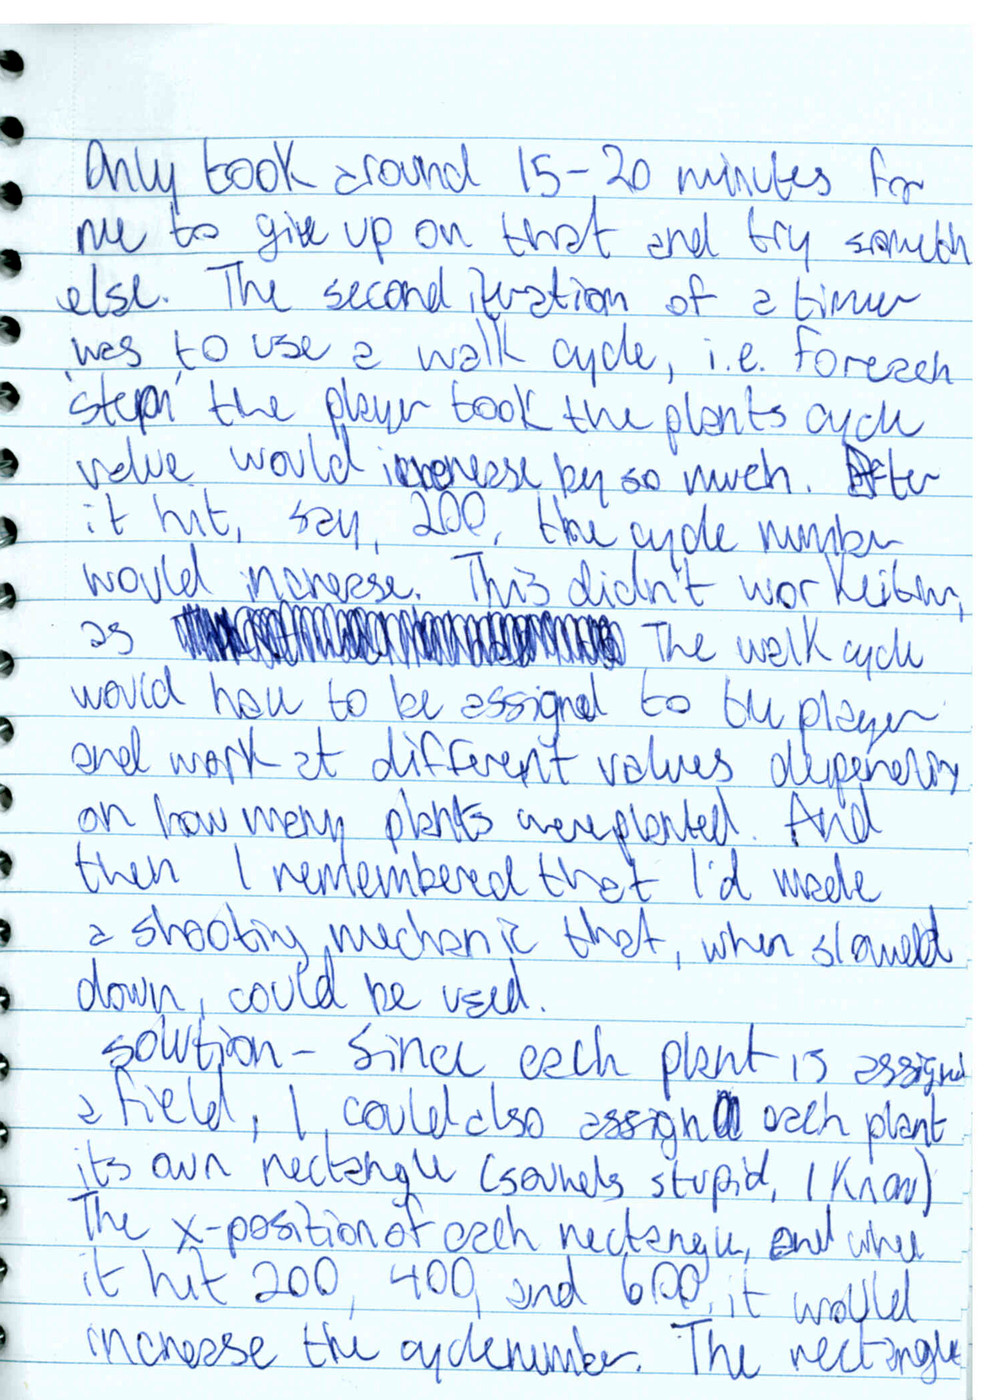 Only took around 15-20 minutes for
me to give up on that and try someth
else. The second iteration of a timer
was to use a walk cycle, i.e. for each
'step' the player took the plants cycle
value would increase by so much. After
it hit, say, 200, the cycle number
would increase. This didn't work either,
as The walk cycle
would have to be assigned to the player
and work at different values depending
on how many plants were planted. And
then I remembered that I'd made
a shooting mechanic that, when slowed
down, could be used.
solution - Since each plant is assigned
a field, I could also assign each plant
its own rectangle (sounds stupid, I know)
The x-position of each rectangle, and when
it hit 200, 400, and 600, it would
increase the cycle number. The rectangle